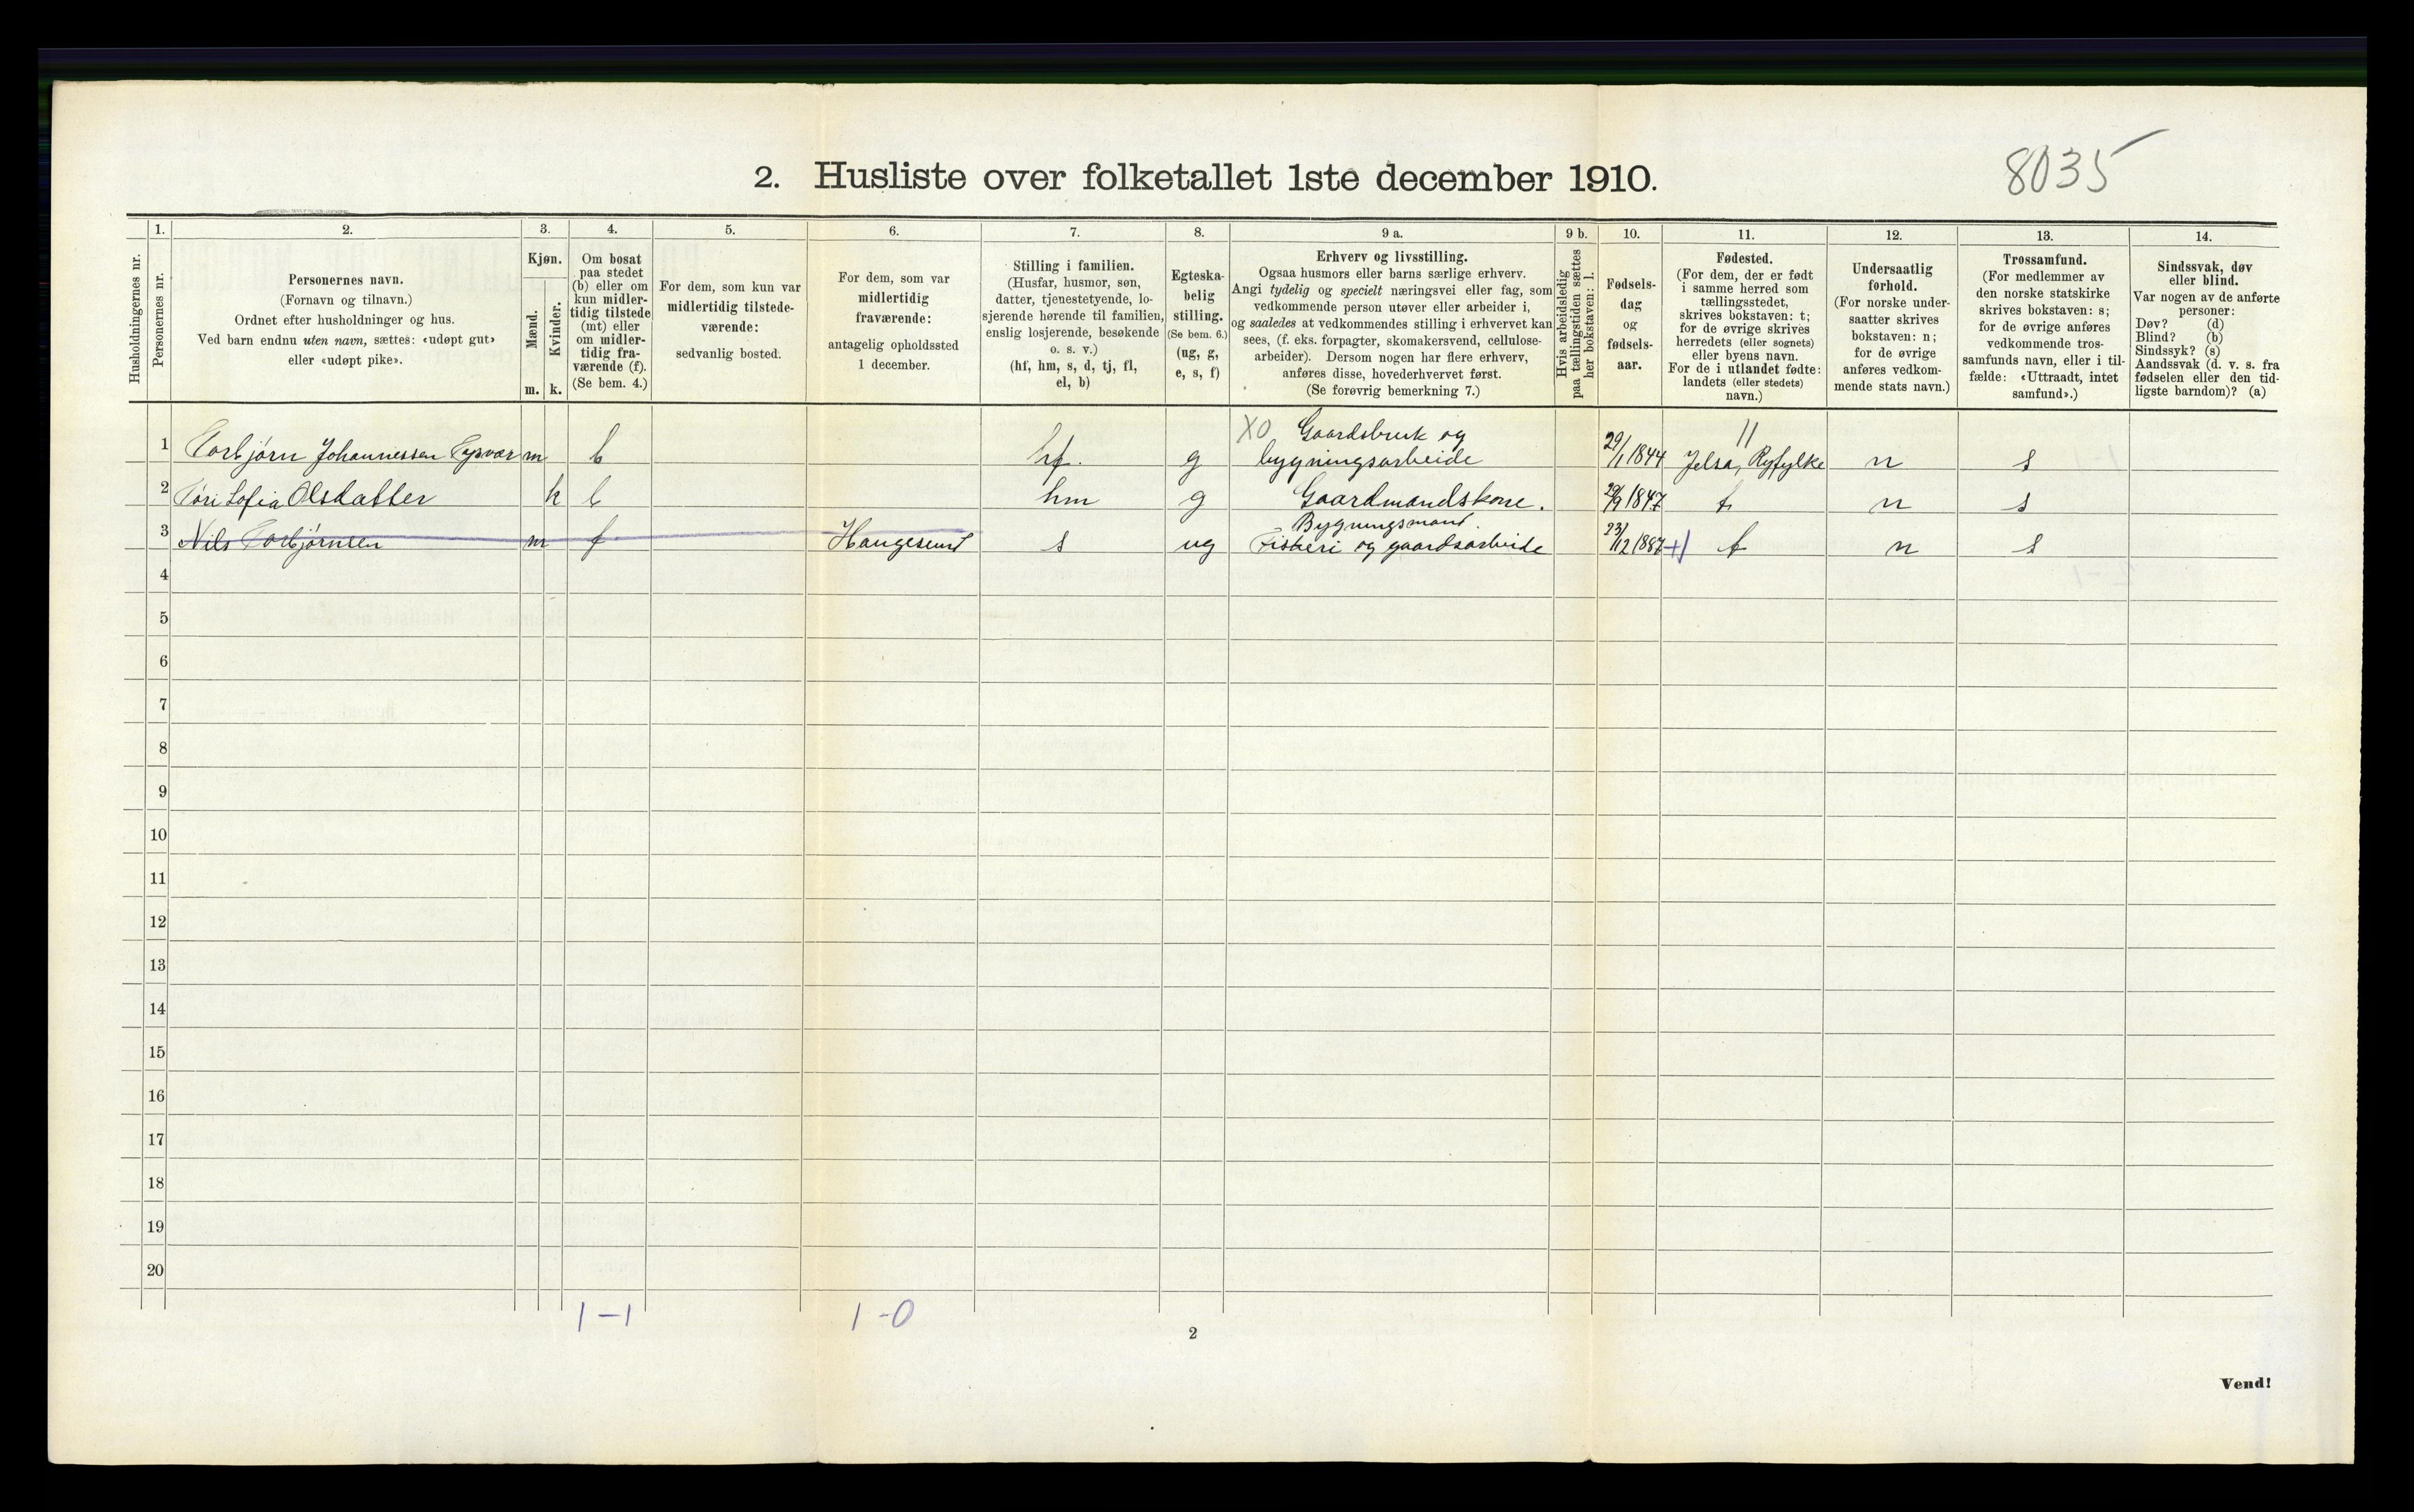 8035
2. Husliste over folketallet 1ste december 1910.
1. 2. 3. 4. 5. 6. 7. 8. 9 a. 9 b. 10. 11. 12. 13. 14.
Husholdningernes nr.
Personernes nr.
Personernes navn.
(Fornavn og tilnavn.)
Ordnet efter husholdninger og hus.
Ved barn endnu uten navn, sættes: «udøpt gut»
eller «udøpt pike».
Kjøn.
Mænd.
Kvinder.
m. k.
Om bosat
paa stedet
(b) eller om
kun midler-
tidig tilstede
(mt) eller
om midler-
tidig fra-
værende (f).
(Se bem. 4.)
For dem, som kun var
midlertidig tilstede-
værende:
sedvanlig bosted.
For dem, som var
midlertidig
fraværende:
antagelig opholdssted
1 december.
Stilling i familien.
(Husfar, husmor, søn,
datter, tjenestetyende, lo-
sjerende hørende til familien,
enslig losjerende, besøkende
o. s. v.)
(hf, hm, s, d, tj, fl,
el, b)
Egteska-
belig
stilling.
(Se bem. 6.)
(ug, g,
e, s, f)
Erhverv og livsstilling.
Ogsaa husmors eller barns særlige erhverv.
Angi tydelig og specielt næringsvei eller fag, som
vedkommende person utøver eller arbeider i,
og saaledes at vedkommendes stilling i erhvervet kan
sees, (f. eks. forpagter, skomakersvend, cellulose-
arbeider). Dersom nogen har flere erhverv,
anføres disse, hovederhvervet først.
(Se forøvrig bemerkning 7.)
Hvis arbeidsledig
paa tællingstiden sættes
her bokstaven: l.
Fødsels-
dag
og
fødsels-
aar.
Fødested.
(For dem, der er født
i samme herred som
tællingsstedet,
skrives bokstaven: t;
for de øvrige skrives
herredets (eller sognets)
eller byens navn.
For de i utlandet fødte:
landets (eller stedets)
navn.)
Undersaatlig
forhold.
(For norske under-
saatter skrives
bokstaven: n;
for de øvrige
anføres vedkom-
mende stats navn.)
Trossamfund.
(For medlemmer av
den norske statskirke
skrives bokstaven: s;
for de øvrige anføres
vedkommende tros-
samfunds navn, eller i til-
fælde: «Uttraadt, intet
samfund».)
Sindssvak, døv
eller blind.
Var nogen av de anførte
personer:
Døv? (d)
Blind? (b)
Sindssyk? (s)
Aandssvak (d. v. s. fra
fødselen eller den tid-
ligste barndom)? (a)
XO Gaardsbruk og 11
1 Torbjørn Johannessen Tysvær m b hf. g bygningsarbeide 29/1 1844 Jelsa, Ryfylke n s
2 Tori Sofia Olsdatter k b hm g Gaardmandskone. 1847 t n s
Bygningsmand.
3 Nils Torbjørnsen m f Haugesund s ug Fiskeri og gaardsarbeide 23/12 1887 t n s
4
5
6
7
8
9
10
11
12
13
14
15
16
17
18
19
20
1-1 1-0
2
Vend!